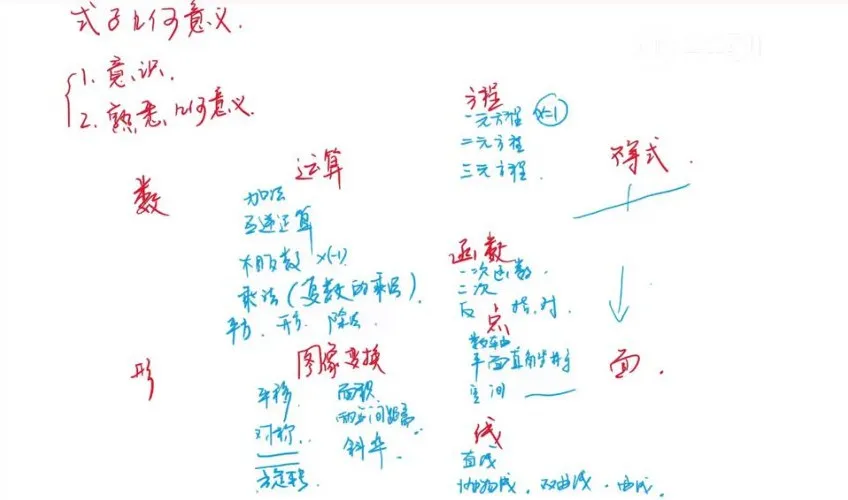 式子几何意义.
1. 意识.
2. 熟悉几何意义.
数
运算
加法
互逆运算
相反数 ×(-1)
乘法(复数的乘法).
平方. 开方. 除法.
方程
一元方程 x=1
二元方程
三元方程.
不等式.
函数
一次函数.
二次
反. 指.对.
形
图像变换
平移. 面积.
对称. 两点间距离
旋转. 斜率.
点
数轴
平面直角坐标系
空间
面.
线
直线
抛物线. 双曲线. 曲线.